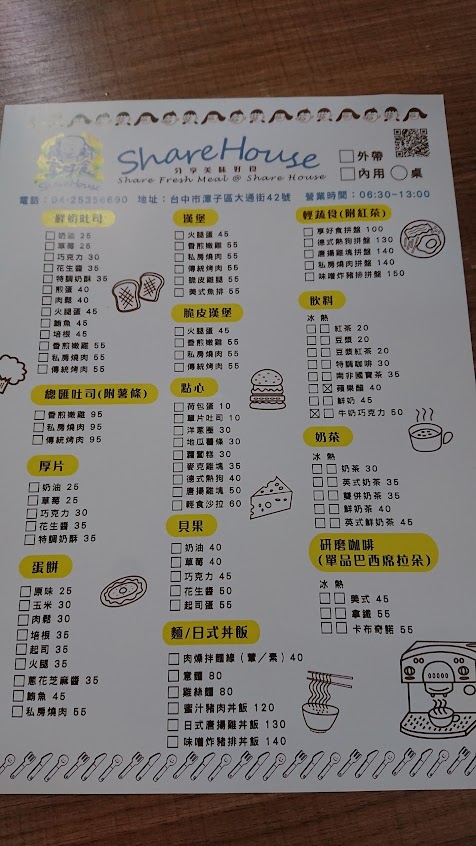 ShareHouse
ShareHouse
分享美味好食
Share Fresh Meal @ Share House
外帶
內用 桌
電話：04-25356690 地址：台中市潭子區大通街42號 營業時間：06:30~13:00
鮮奶吐司
奶油 25
草莓 25
巧克力 30
花生醬 35
特調奶酥 35
煎蛋 40
肉鬆 40
火腿蛋 45
鮪魚 45
培根 45
香煎嫩雞 55
私房燒肉 55
傳統烤肉 55
總匯吐司(附薯條)
香煎嫩雞 95
私房燒肉 95
傳統烤肉 95
厚片
奶油 25
草莓 25
巧克力 30
花生醬 35
特調奶酥 35
蛋餅
原味 25
玉米 30
肉鬆 30
培根 35
起司 35
火腿 35
蔥花芝麻醬 35
鮪魚 45
私房燒肉 55
漢堡
火腿蛋 45
香煎嫩雞 55
私房燒肉 55
傳統烤肉 55
脆皮雞腿 55
美式魚排 55
脆皮漢堡
火腿蛋 45
香煎嫩雞 55
私房燒肉 55
傳統烤肉 55
點心
荷包蛋 10
單片吐司 10
洋蔥圈 30
地瓜薯條 30
蘿蔔糕 30
麥克雞塊 35
德式熱狗 40
唐揚雞塊 50
輕食沙拉 60
貝果
奶油 40
草莓 40
巧克力 45
花生醬 50
起司蛋 55
麵/日式丼飯
肉燥拌麵線（葷／素）40
意麵 80
雞絲麵 80
蜜汁豬肉丼飯 120
日式唐揚雞丼飯 130
味噌炸豬排丼飯 140
輕蔬食(附紅茶)
享好食拼盤 100
德式熱狗拼盤 130
唐揚雞塊拼盤 140
私房燒肉拼盤 140
味噌炸豬拼盤 150
飲料
冰 熱
紅茶 20
豆漿 20
豆漿紅茶 20
特調咖啡 30
南非國寶茶 35
蘋果醋 40
鮮奶 45
牛奶巧克力 50
奶茶
冰 熱
奶茶 30
英式奶茶 35
雙併奶茶 35
鮮奶茶 40
英式鮮奶茶 45
研磨咖啡
(單品巴西席拉朵)
冰 熱
美式 45
拿鐵 55
卡布奇諾 55